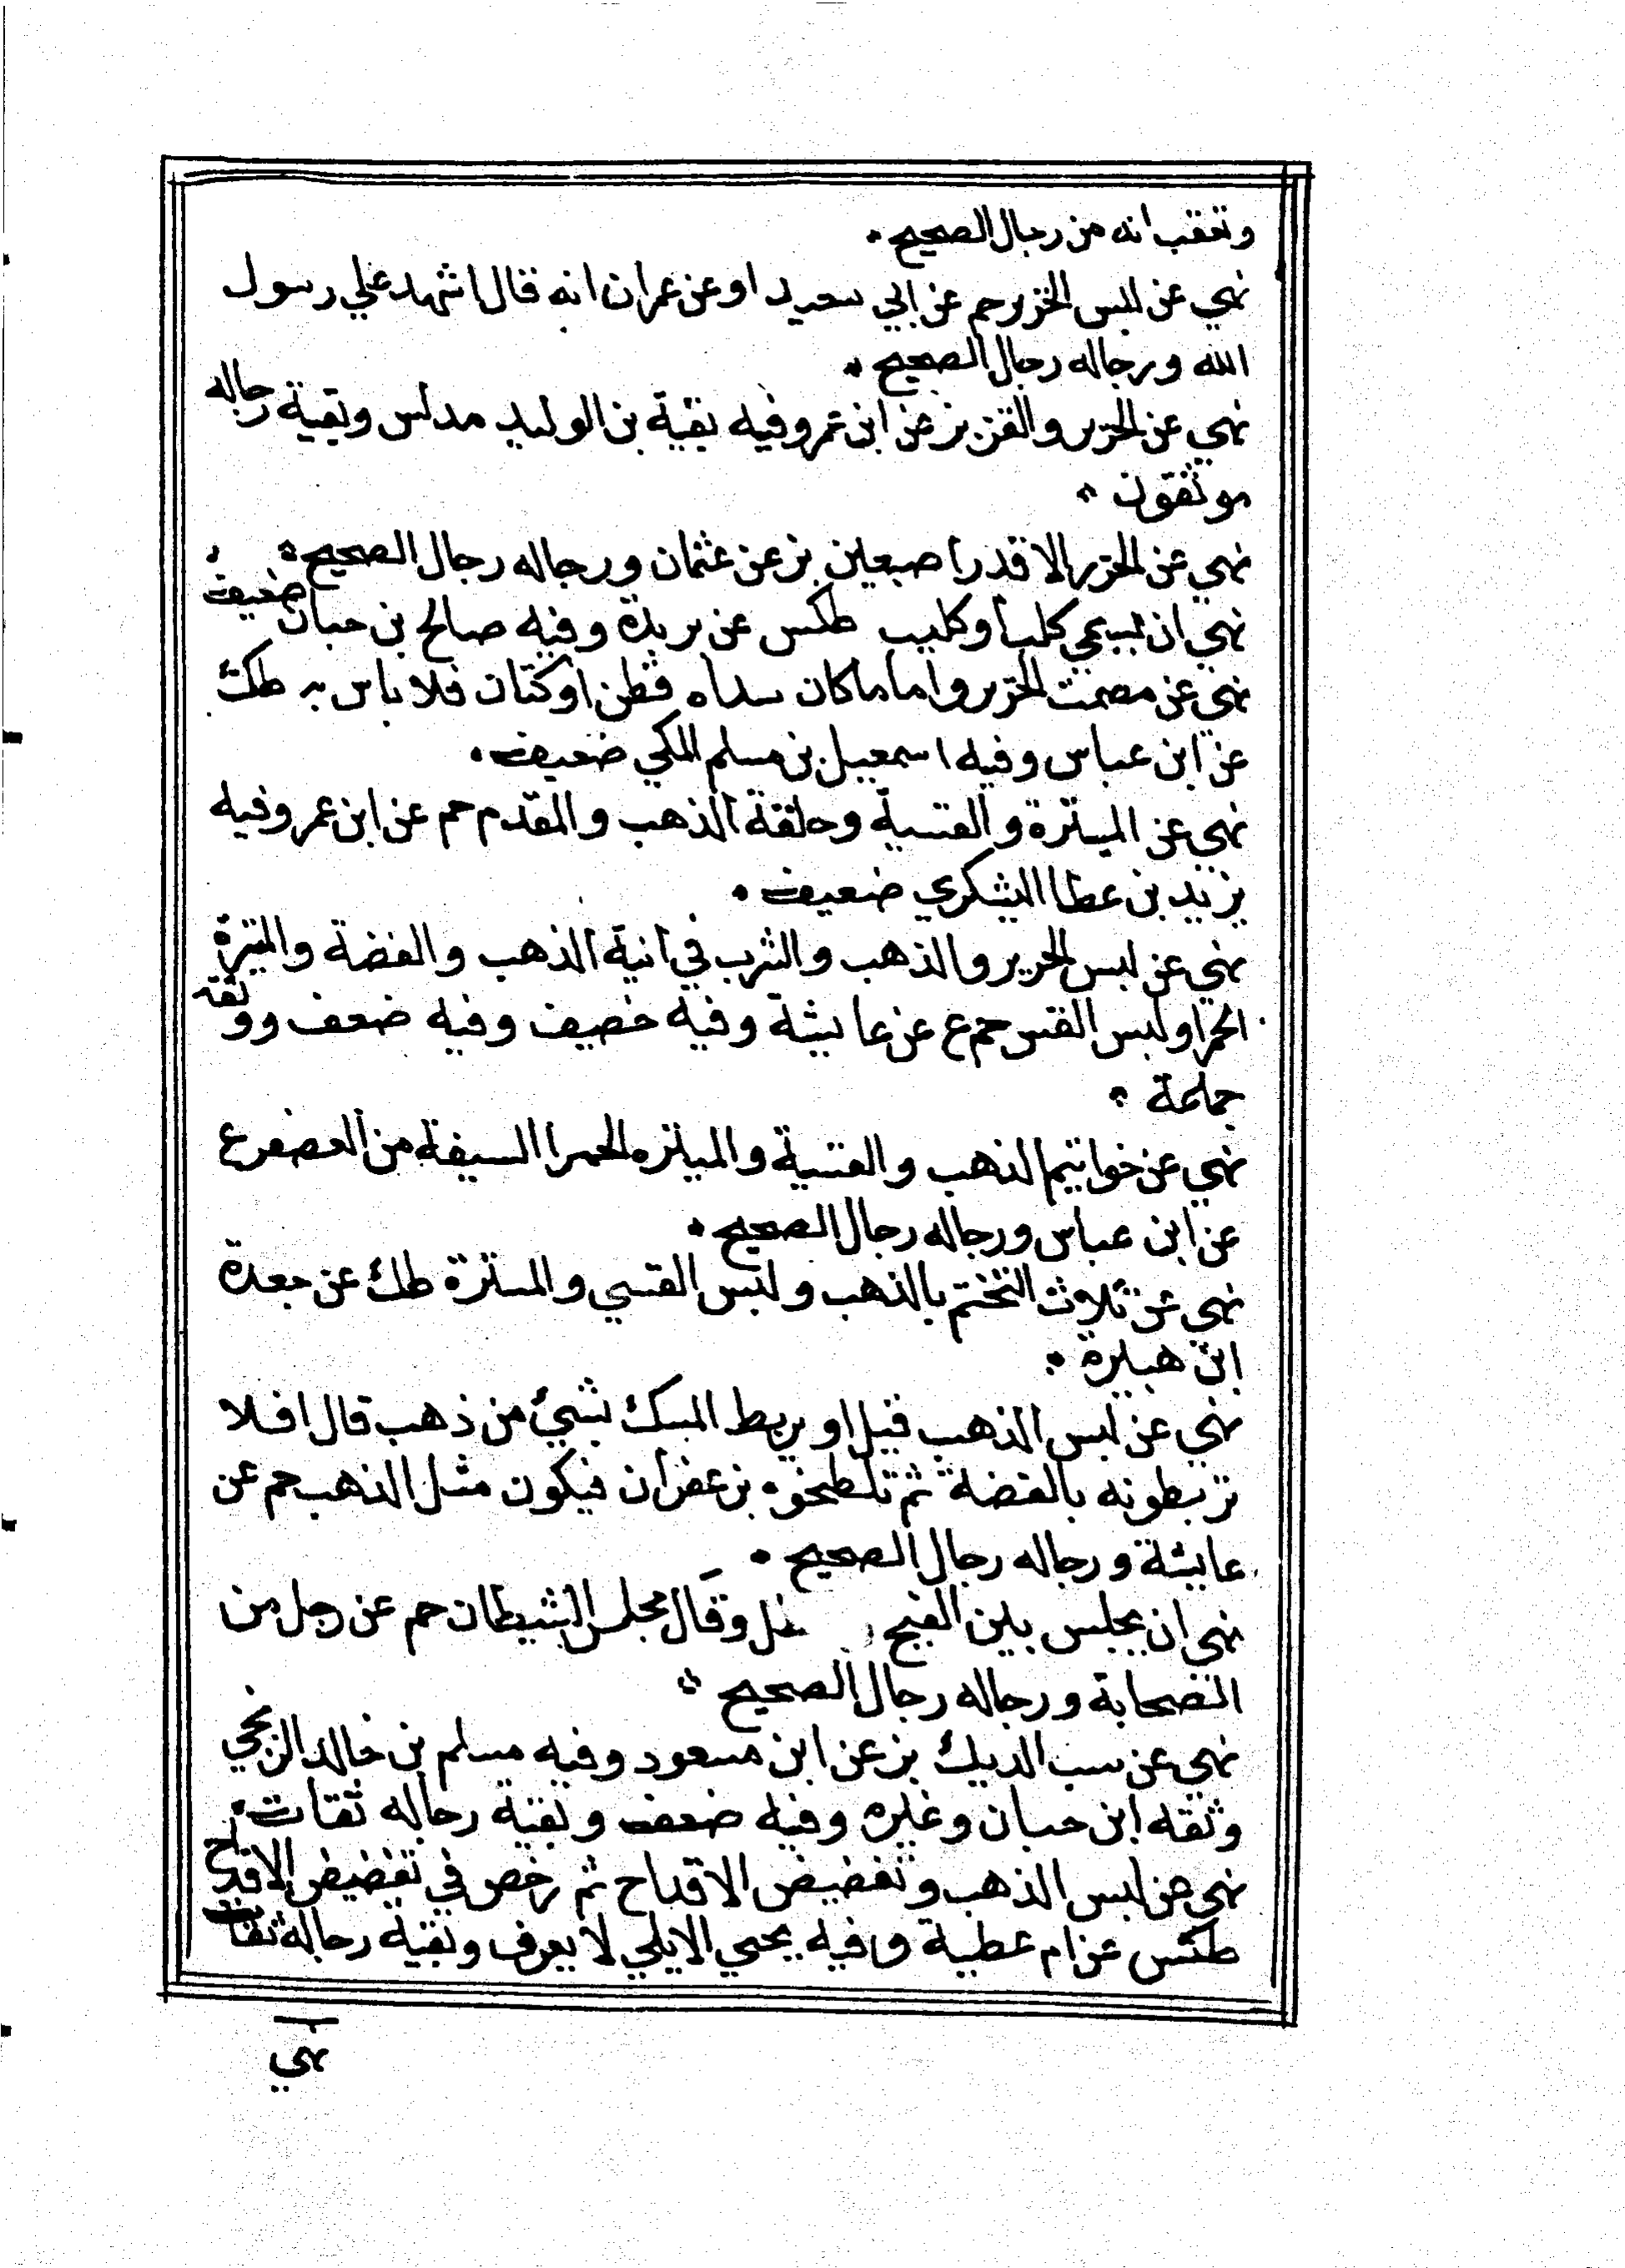 وتعقب انه من رجال الصحيح
نهي عن لبس الحرير حم عن ابي سعيد او عن عمران انه قال اشهد علي رسول
الله ورجاله رجال الصحيح
نهي عن الحرير والقز بز عن ابن عمر وفيه بقية بن الوليد مدلس وبقية رجاله
موثقون
نهي عن الحرير الا قدر اصبعين بز عن عثمان ورجاله رجال الصحيح
نهي ان يسمي كلبا وكليب طكس عن بريدة وفيه صالح بن حبان ضعيف
نهي عن مصمت الحرير واما ماكان سداه قطن او كتان فلا باس به طك
عن ابن عباس وفيه اسمعيل بن مسلم المكي ضعيف
نهي عن الميثرة والقسية وحلقة الذهب والمقدم حم عن ابن عمر وفيه
يزيد بن عطا اليشكري ضعيف
نهي عن لبس الحرير والذهب والشرب في انية الذهب والفضة والميثرة
الحمرا ولبس القسي حم ع عن عايشة وفيه خصيف وفيه ضعف ووثقه
جماعة
نهي عن خواتيم الذهب والقسية والميثره الحمرا من العصفر ع
عن ابن عباس ورجاله رجال الصحيح
نهي عن ثلاث التختم بالذهب ولبس القسي والميثرة طك عن جعدة
ابن هبيرة
نهي عن لبس الذهب قيل او يربط المسك بشيء من ذهب قال افلا
تربطونه بالفضة ثم تلطخوه بزعفران فيكون مثل الذهب حم عن
عايشة ورجاله رجال الصحيح
نهي ان يجلس بين الضح وقال مجلس الشيطان حم عن رجل من
الصحابة ورجاله رجال الصحيح
نهي عن سب الديك بز عن ابن مسعود وفيه مسلم بن خالد الزنجي
وثقه ابن حبان وغيره وفيه ضعف وبقية رجاله ثقات
نهي عن لبس الذهب وتفضيض الاقداح ثم رخص في تفضيض الاقداح
طكس عن ام عطية وفيه يحيي الايلي لا يعرف وبقية رجاله ثقات
نهي